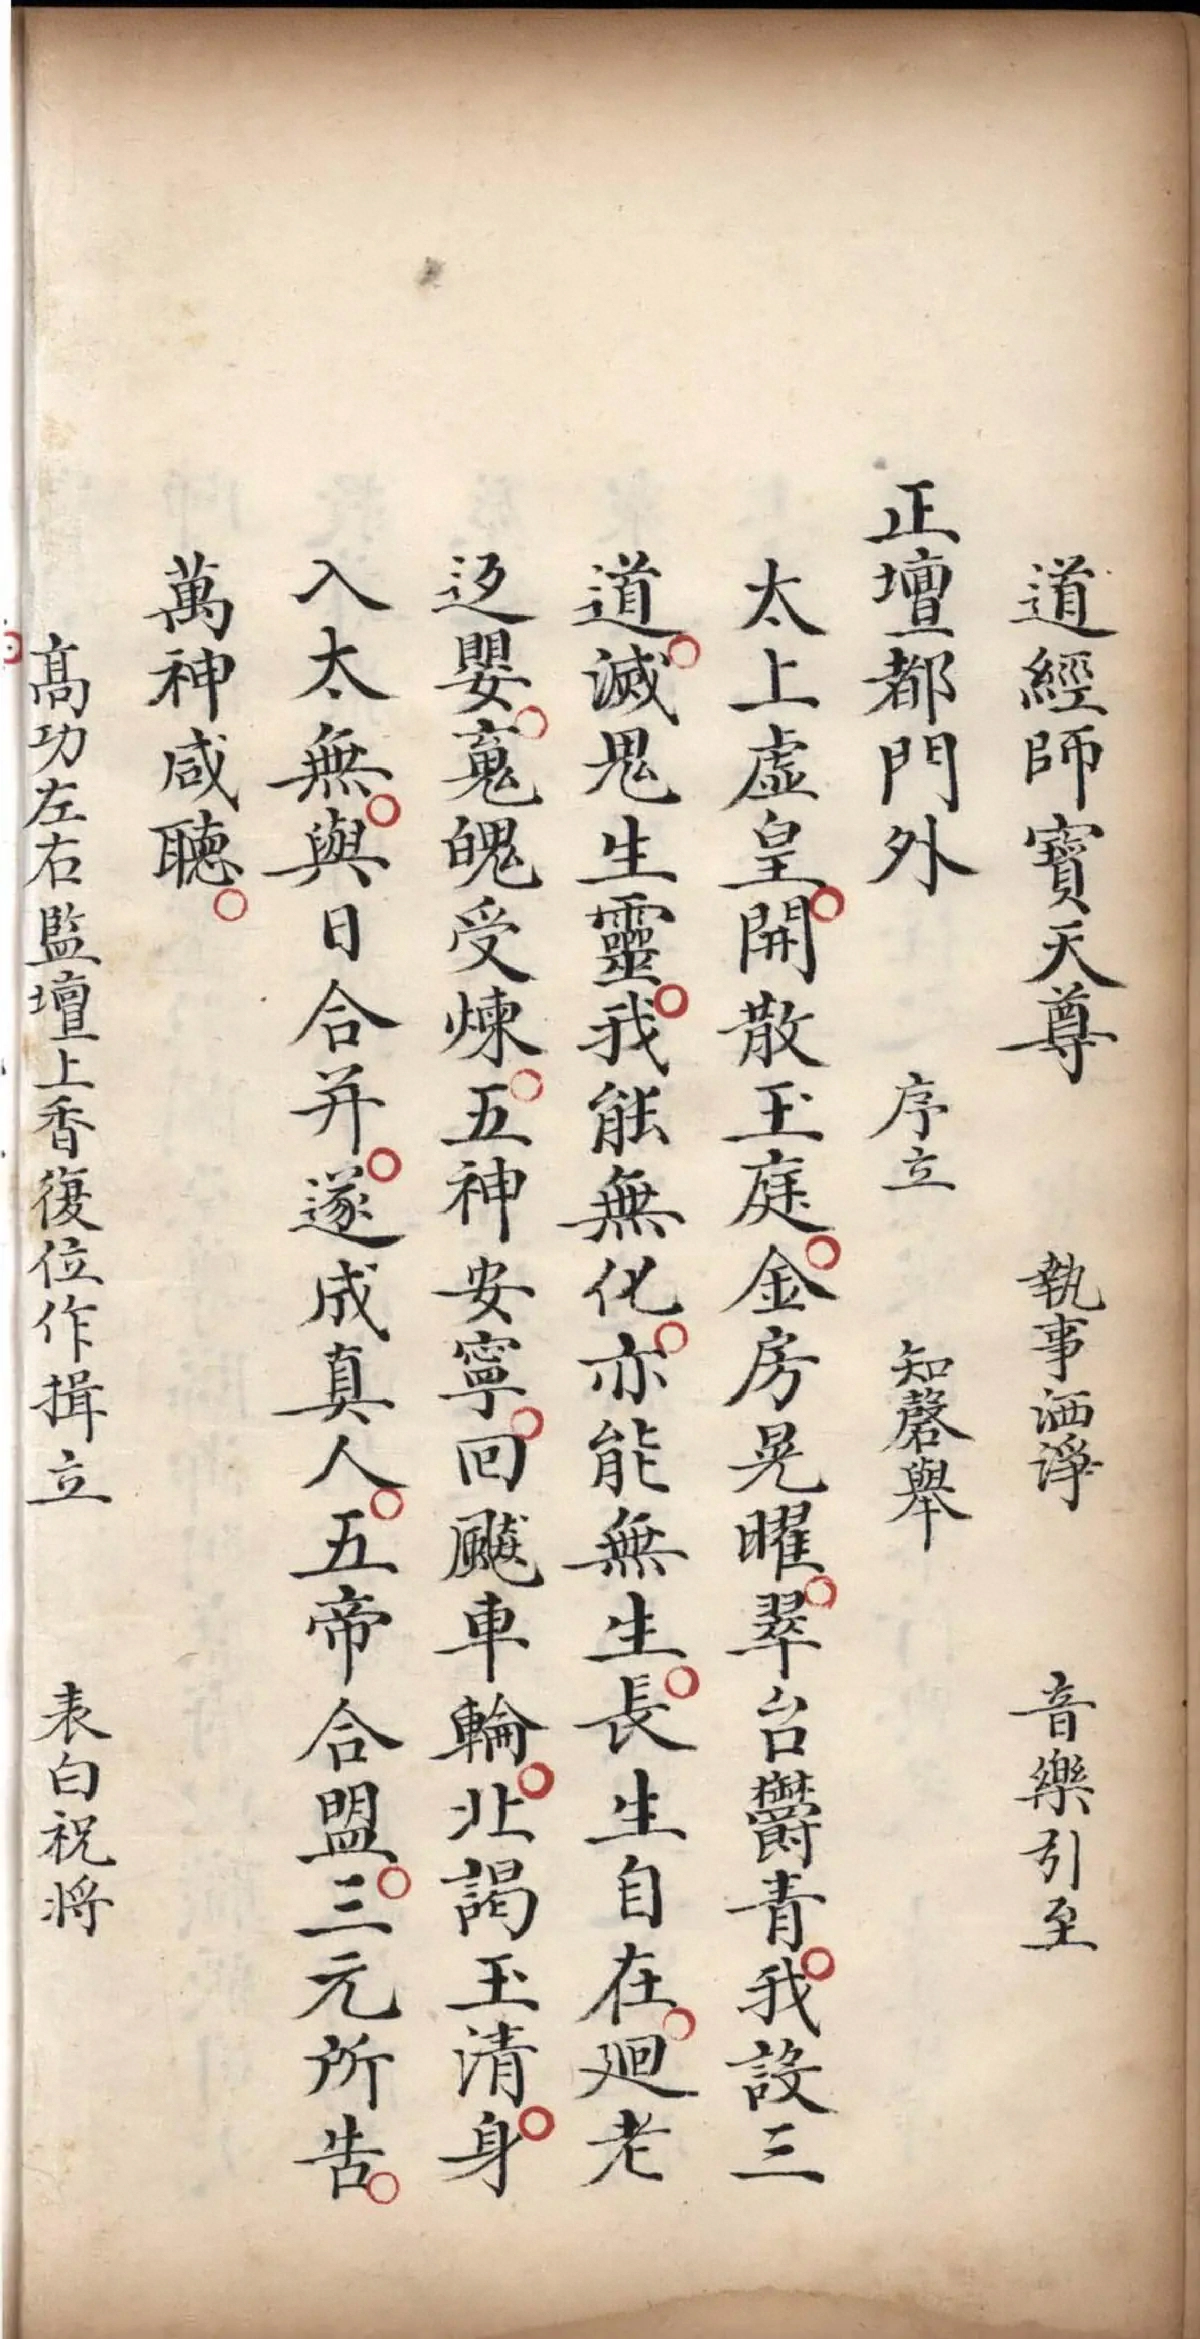 道經師寶天尊 執事洒淨 音樂引至
正壇都門外 序立 知磬舉
太上虛皇。開散玉庭。金房晃曜。翠台鬱青。我設三
道。滅鬼生靈。我能無化。亦能無生。長生自在。廻老
返嬰。䰟魄受煉。五神安寧。回飈車輪。北謁玉清。身
入太無。與日合并。遂成真人。五帝合盟。三元所告。
萬神咸聽。
高功左右監壇上香復位作揖立 表白祝將